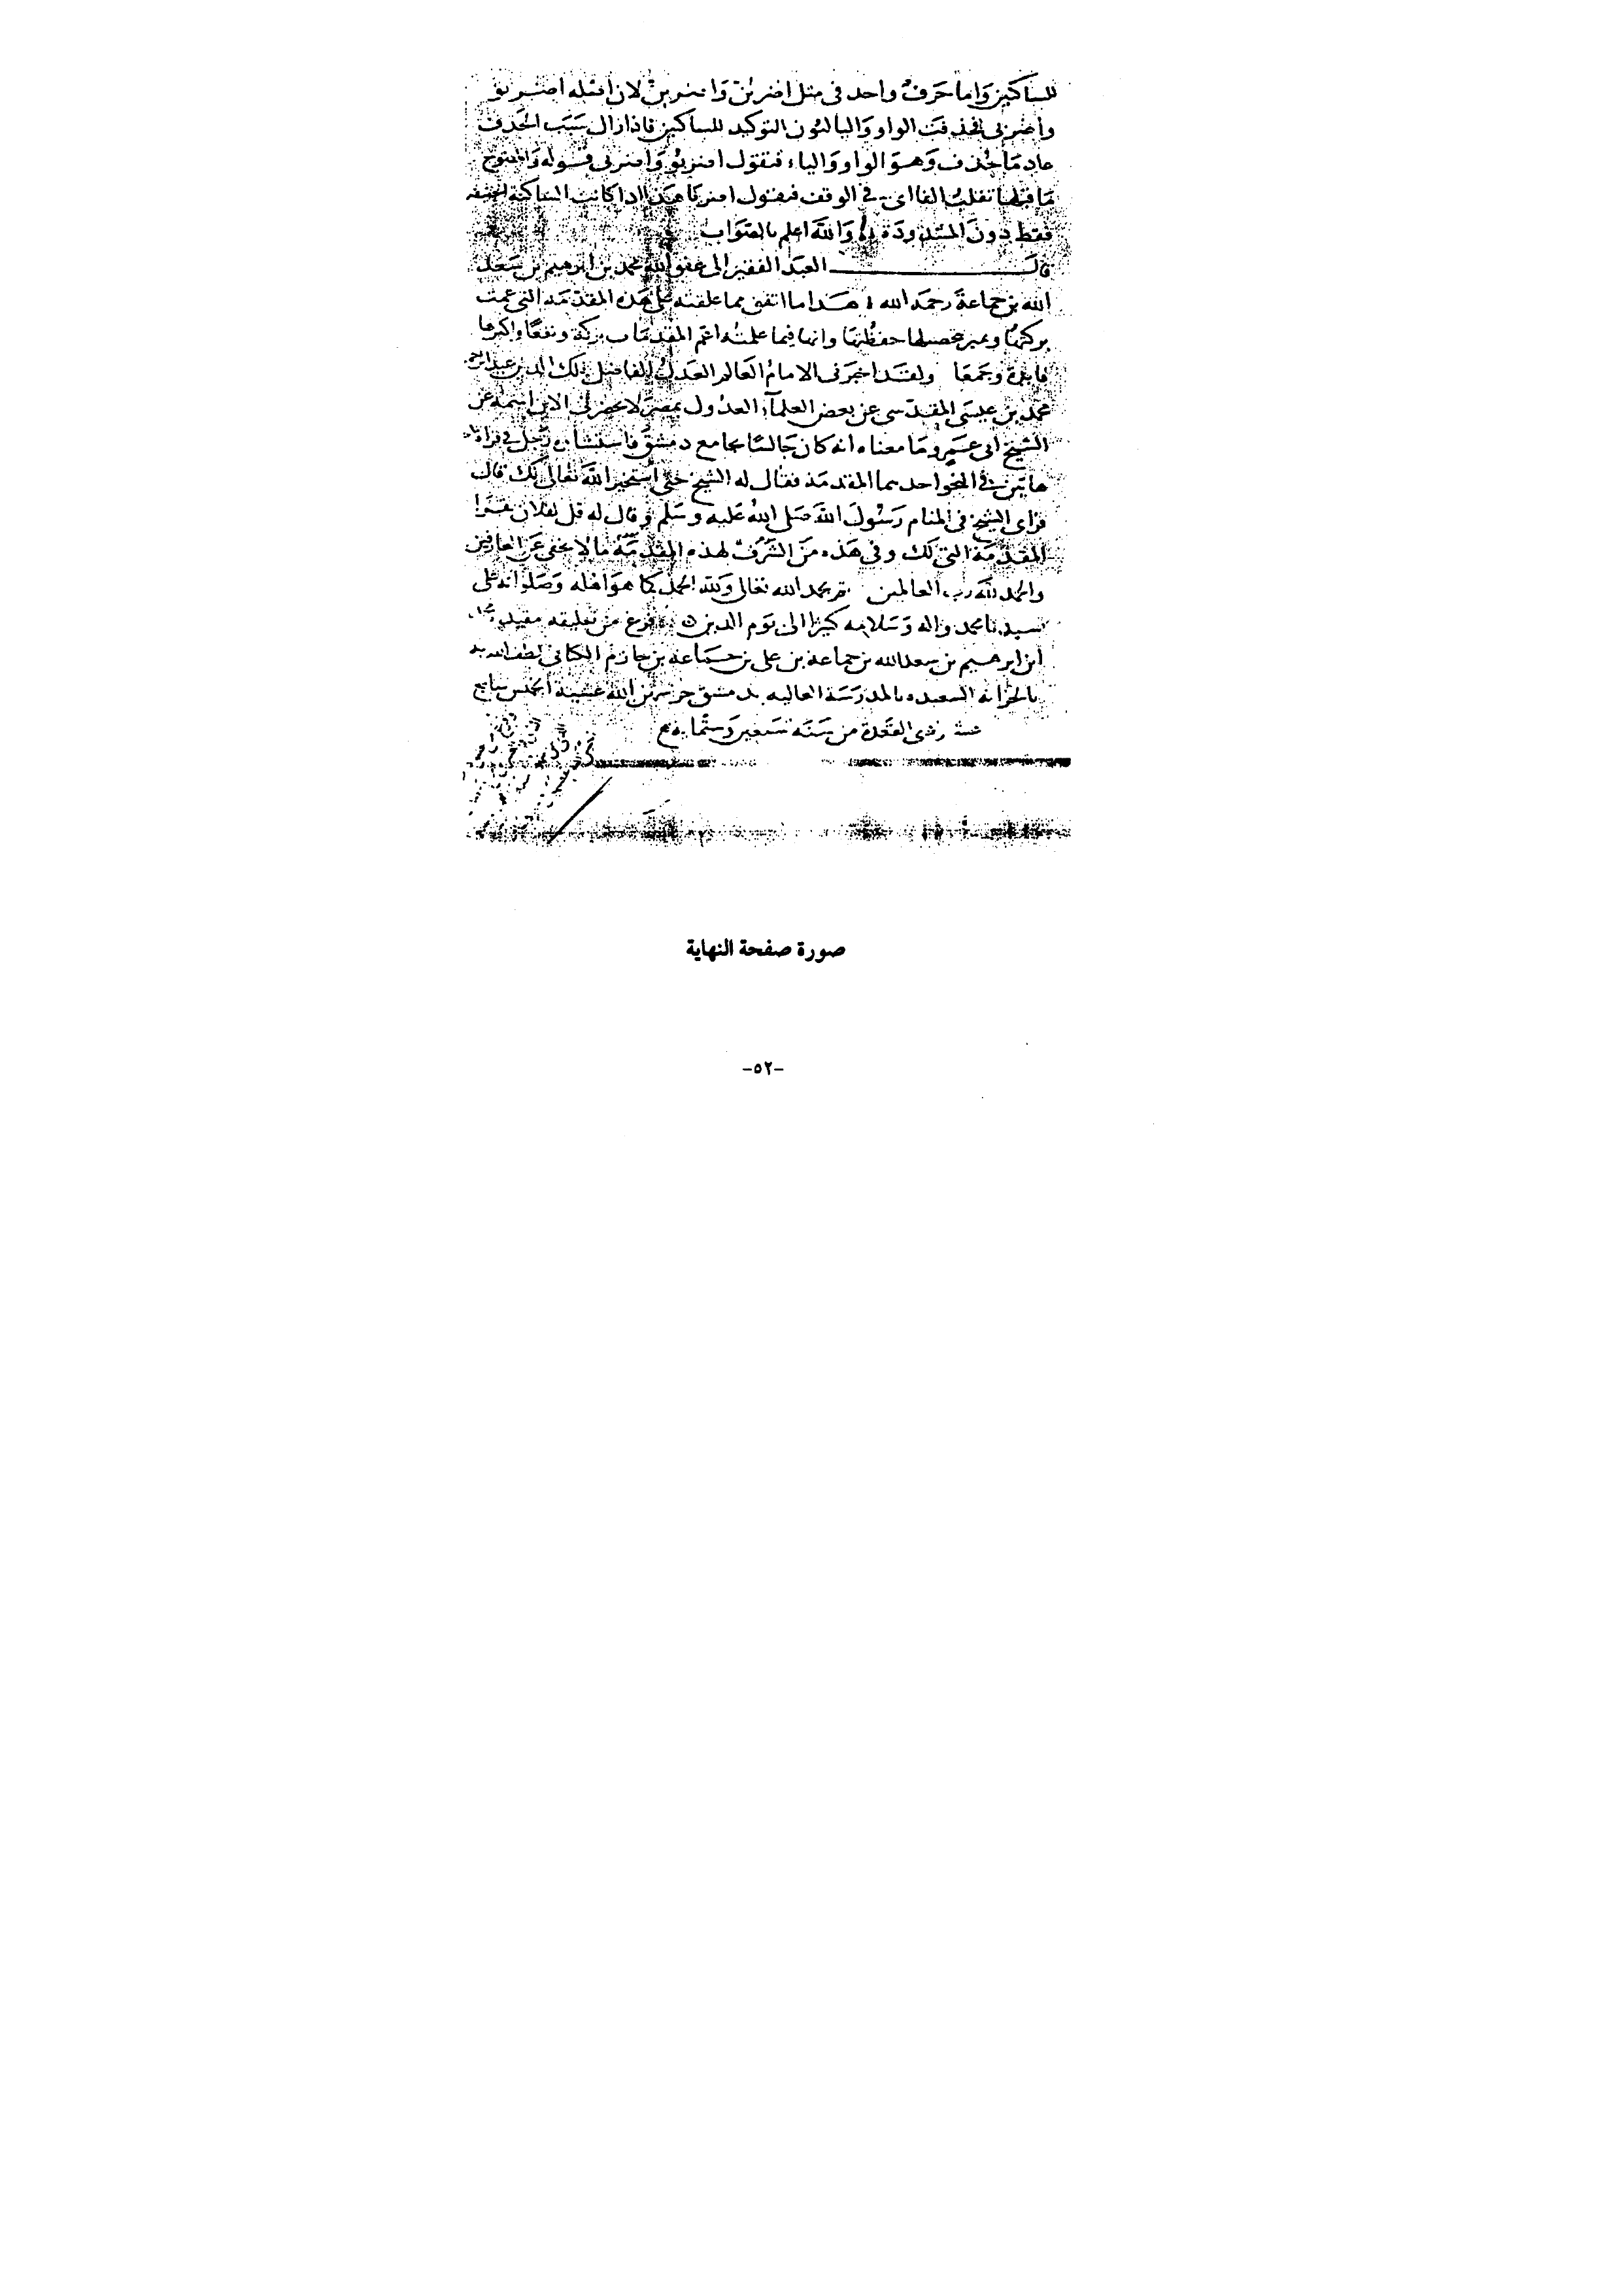 للساكنين واما حرف واحد في مثل اضربن واضربن لان اصله اضربو
واضربي فحذفت الواو واليا لنون التوكيد للساكنين فاذا زال سبب الحذف
عاد ما حذف وهو الواو والياء فتقول اضربو واضربي قوله والمفتوح
ما قبلها تقلب الفا اي في الوقف فتقول اضربا هذا اذا كانت الساكنة الخفيفه
فقط دون المشدودة والله اعلم بالصواب
قال العبد الفقير الى عفو الله محمد بن ابرهيم بن سعد
الله بن جماعة رحمه الله هذا ما اتفق مما علقته على هذه المقدمه التي عمت
بركتها وانها فيما علمته اعم المقدمات بركة ونفعا واكبرها
فايدة وجمعا ولقد اخبرني الامام العالم العدل الفاضل
محمد بن عيسى المقدسي عن بعض العلمآء العدول بمصر لا يحضرني الان اسمه عن
الشيخ ابي عمرو ما معناه انه كان جالسا بجامع دمشق فاستشاره رجل في قراة
في النحو احدهما المقدمة فقال له الشيخ حتى استخير الله تعالى لك قال
فراى الشيخ في المنام رسول الله صلى الله عليه وسلم وقال له قل لفلان يقرا
المقدمة التي لك وفي هذه من الشرف لهذه المقدمة ما لا يخفى عن العارفين
والحمد لله رب العالمين تم بحمد الله تعالى ولله الحمد كما هو اهله وصلواته على
سيدنا محمد واله وسلامه كثيرا الى يوم الدين فرغ من تعليقه محمد
ابن ابرهيم بن سعد الله بن جماعة بن علي بن جماعة بن حازم الكناني لطف الله به
بالخزانه السعيده بالمدرسة العاليه بدمشق حرسها الله عشية الخميس سابع
عشر ذي القعدة من سنة سبعين وستمايه
صورة صفحة النهاية
-٥٢-